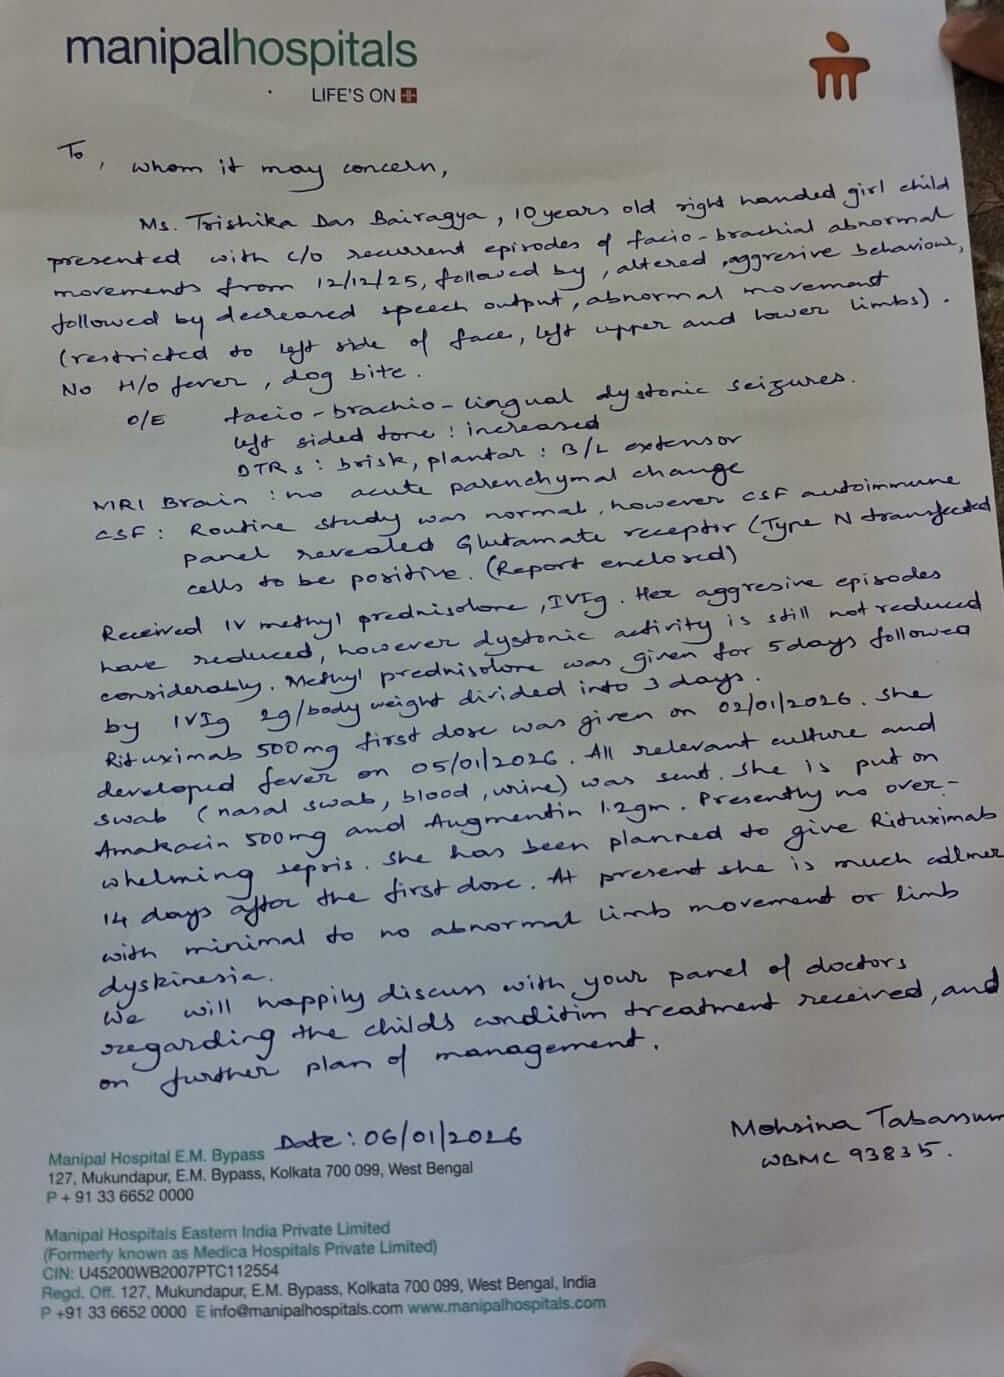 manipalhospitals
LIFE'S ON
To, whom it may concern,
Ms. Trishika Das Bairagya, 10 years old right handed girl child
presented with c/o recurrent episodes of facio-brachial abnormal
movements from 12/12/25, followed by, altered, aggresive behaviour,
followed by decreased speech output, abnormal movement
(restricted to left side of face, left upper and lower limbs).
No H/o fever, dog bite.
O/E facio-brachio-lingual dystonic seizures.
left sided tone: increased
DTRs: brisk, plantar: B/L extensor
MRI Brain: no acute parenchymal change
CSF: Routine study was normal, however CSF autoimmune
panel revealed Glutamate receptor (Type N transfected
cells to be positive. (Report enclosed)
Received IV methyl prednisolone, IVIg. Her aggresive episodes
have reduced, however dystonic activity is still not reduced
considerably. Methyl prednisolone was given for 5 days followed
by IVIg 2g/body weight divided into 3 days.
Rituximab 500mg first dose was given on 02/01/2026. She
developed fever on 05/01/2026. All relevant culture and
swab (nasal swab, blood, urine) was sent. She is put on
Amakacin 500mg and Augmentin 1.2gm. Presently no over-
whelming sepsis. She has been planned to give Rituximab
14 days after the first dose. At present she is much calmer
with minimal to no abnormal limb movement or limb
dyskinesia.
We will happily discuss with your panel of doctors
regarding the childs condition treatment received, and
on further plan of management.
Mohsina Tabassum
WBMC 93835.
Date: 06/01/2026
Manipal Hospital E.M. Bypass
127, Mukundapur, E.M. Bypass, Kolkata 700 099, West Bengal
P + 91 33 6652 0000
Manipal Hospitals Eastern India Private Limited
(Formerly known as Medica Hospitals Private Limited)
CIN: U45200WB2007PTC112554
Regd. Off. 127, Mukundapur, E.M. Bypass, Kolkata 700 099, West Bengal, India
P +91 33 6652 0000 E info@manipalhospitals.com www.manipalhospitals.com